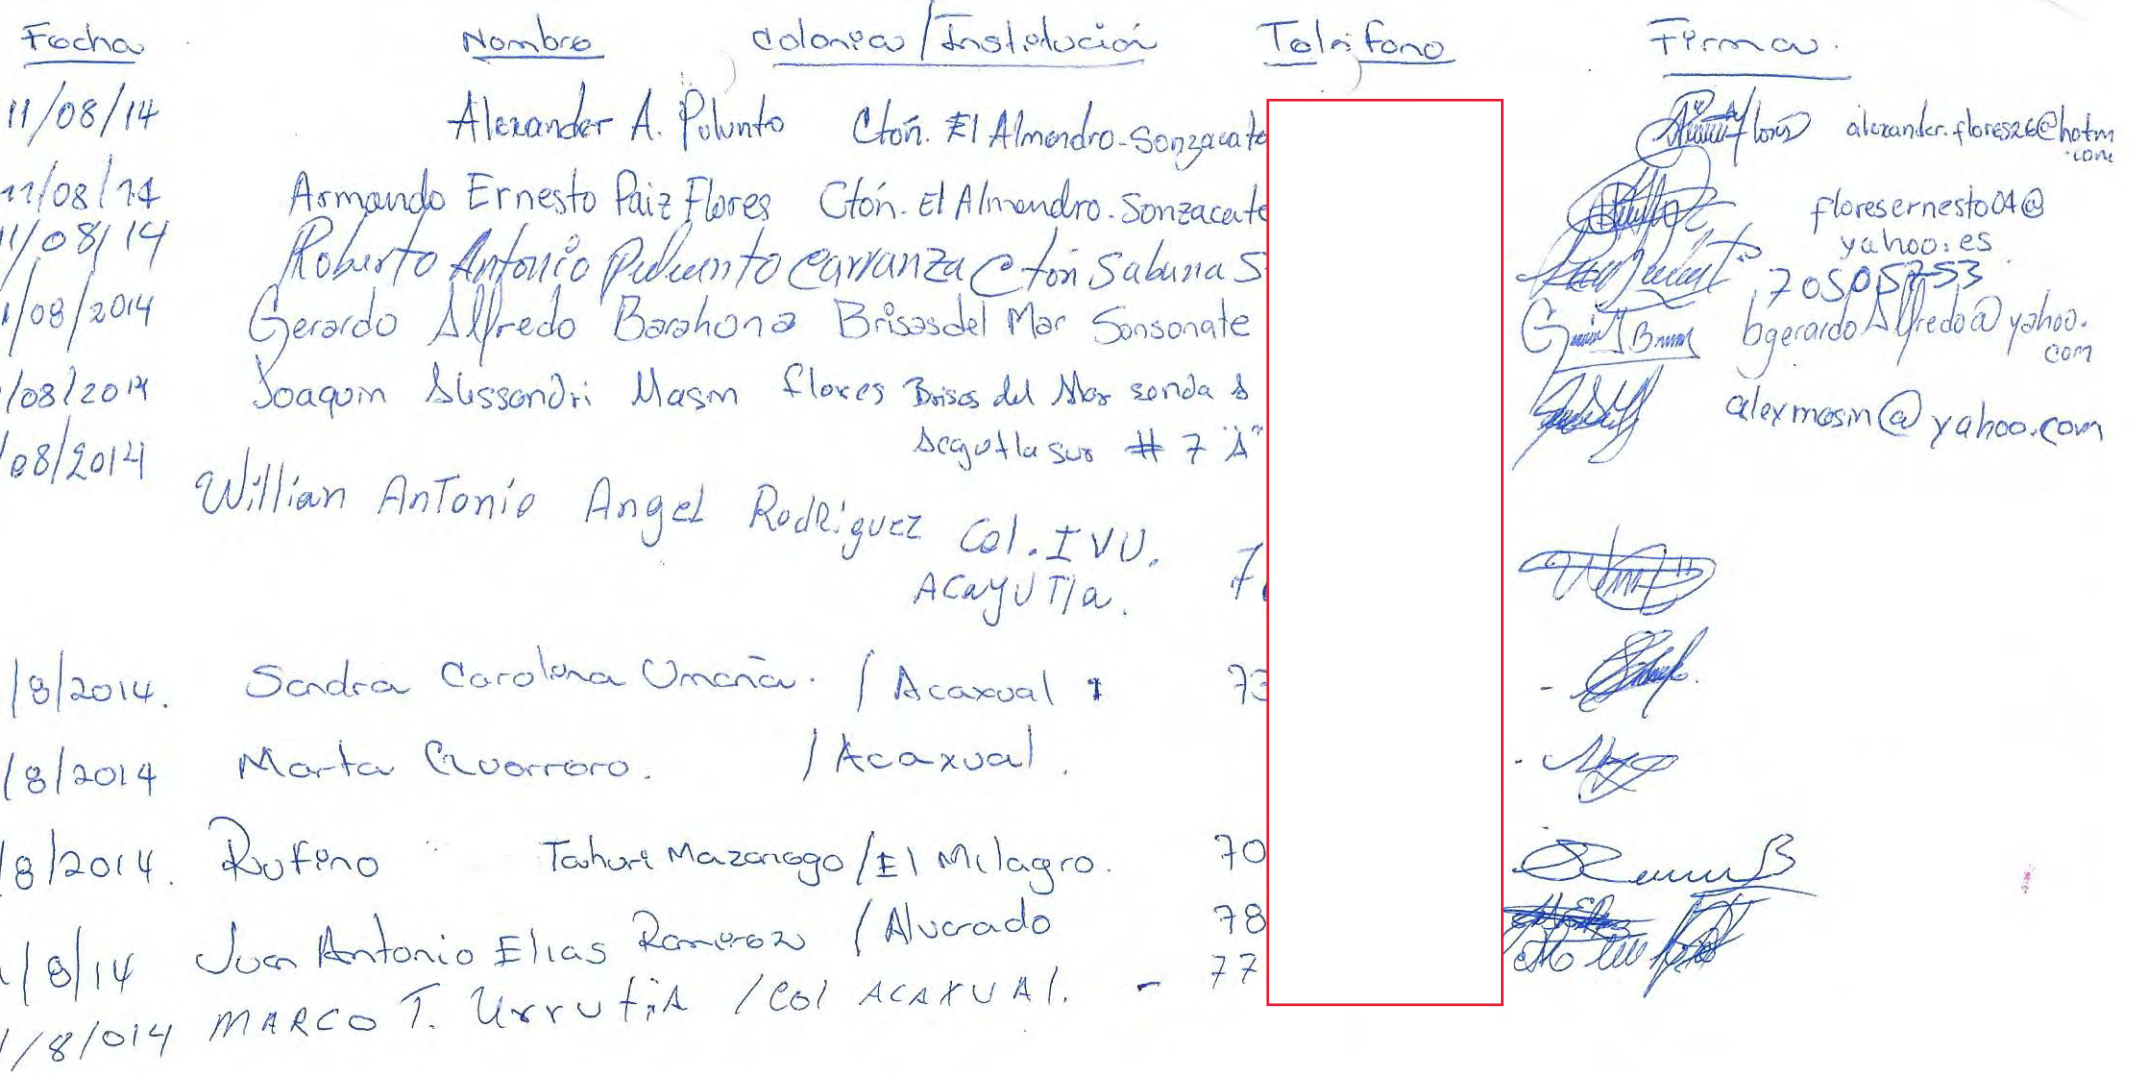 Fecha Nombre Colonia/Institución Teléfono Firma.
11/08/14 Alexander A. Pulunto Ctón. El Almendro-Sonzacate alexander.flores26@hotm
.com
11/08/14 Armando Ernesto Paiz Flores Ctón. El Almendro. Sonzacate floresernesto04@
yahoo.es
11/08/14 Roberto Antonio Carranza Ctón Sabana S 70505753
/08/2014 Gerardo Alfredo Barahona Brisas del Mar Sonsonate bgerardoAlfredo@yahoo.
com
/08/2014 Joaquin Alissandri Masin flores Brisas del Mar senda A alexmasin@yahoo.com
sur # 7 "A"
/08/2014 Willian Antonio Angel Rodriguez Col. IVU. 7
ACayUTla.
/8/2014. Sandra Carolina Umaña. / Acaxual 1 73
/8/2014 Marta Guerrero. / Acaxual.
/8/2014. Rufino /El Milagro. 70
/8/14 Juan Antonio Elias Ramirez / Alvarado 78
1/8/014 MARCO T. UrrutiA /Col ACAXUAl. - 77